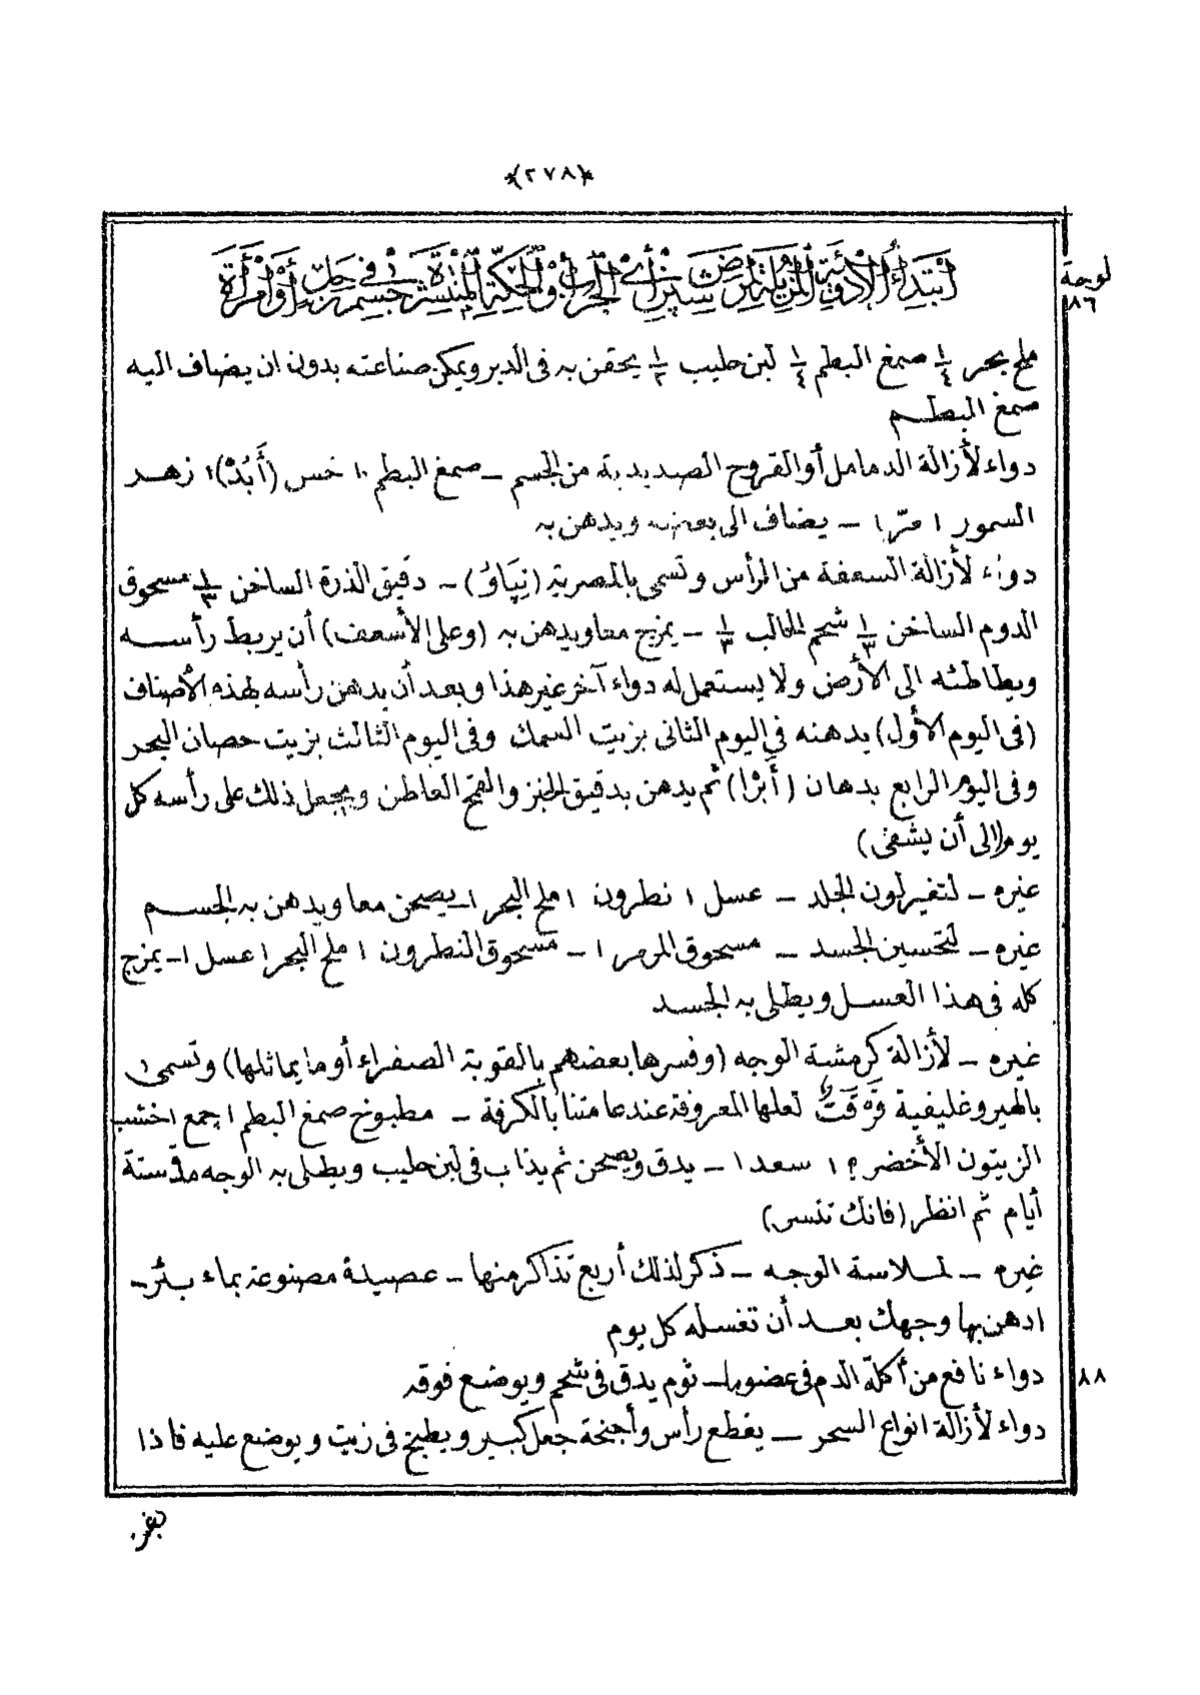 *(٢٧٨)*
لوحة
٨٦
ابتداء الأدوية المزيلة لمرض ... أى الجرب أو الحكة المنتشرة في جسم رجل أو امرأة
ملح بحر ١/٤ صمغ البطم ١/٤ لبن حليب ١/٢ يحقن به فى الدبر ويمكن صناعته بدون ان يضاف اليه
صمغ البطم
دواء لأزالة الدمامل أو القروح الصديدية من الجسم – صمغ البطم ١٠ خس (أَبُدْ) ١ زهد
السمور ١ مرّ ١ – يضاف الى بعضه ويدهن به
دواء لأزالة السعفة من الرأس وتسمى بالمصرية (نِپَاوُ) – دقيق الذرة الساخن ١/٣ مسحوق
الدوم الساخن ١/٣ شحم ١/٣ – يمزج معا ويدهن به (وعلى الأسعف) أن يربط رأسه
ويطاطئه الى الأرض ولا يستعمل له دواء آخر غير هذا وبعد أن يدهن رأسه بهذه الأصناف
(فى اليوم الأول) يدهنه في اليوم الثانى بزيت السمك وفى اليوم الثالث بزيت حصان البحر
وفى اليوم الرابع بدهان (أَبْرَا) ثم يدهن بدقيق الخبز والقمح العاطن ويجعل ذلك على رأسه كل
يوم (الى أن يشفى)
غيره – لتغير لون الجلد – عسل ١ نطرون ١ ملح البحر ١ – يصحن معا ويدهن به الجسم
غيره – لتحسين الجسد – مسحوق المرمر ١ – مسحوق النطرون ١ ملح البحر ١ عسل ١ – يمزج
كله فى هذا العسل ويطلى به الجسد
غيره – لأزالة كرمشة الوجه (وفسرها بعضهم بالقوبة الصفراء أو ما يماثلها) وتسمى
بالهيروغليفية لعلها المعروفة عند عامتنا بالكرفة – مطبوخ صمغ البطم ١ جمع ١ خشب
الزيتون الأخضر ؟ ١ سعد ١ – يدق ويصحن ثم يذاب فى لبن حليب ويطلى به الوجه مدّة ستة
أيام ثم انظر (فانك تنسى)
غيره – لملاسة الوجه – ذكر لذلك أربع تذاكر منها – عصيدة مصنوعة بماء بئر –
ادهن بها وجهك بعد أن تغسله كل يوم
٨٨
دواء نافع من أكلة الدم فى عضو ما – ثوم يدق فى شحم ويوضع فوقه
دواء لأزالة انواع السحر – يقطع رأس وأجنحة جعل كبير ويطبخ فى زيت ويوضع عليه فاذا